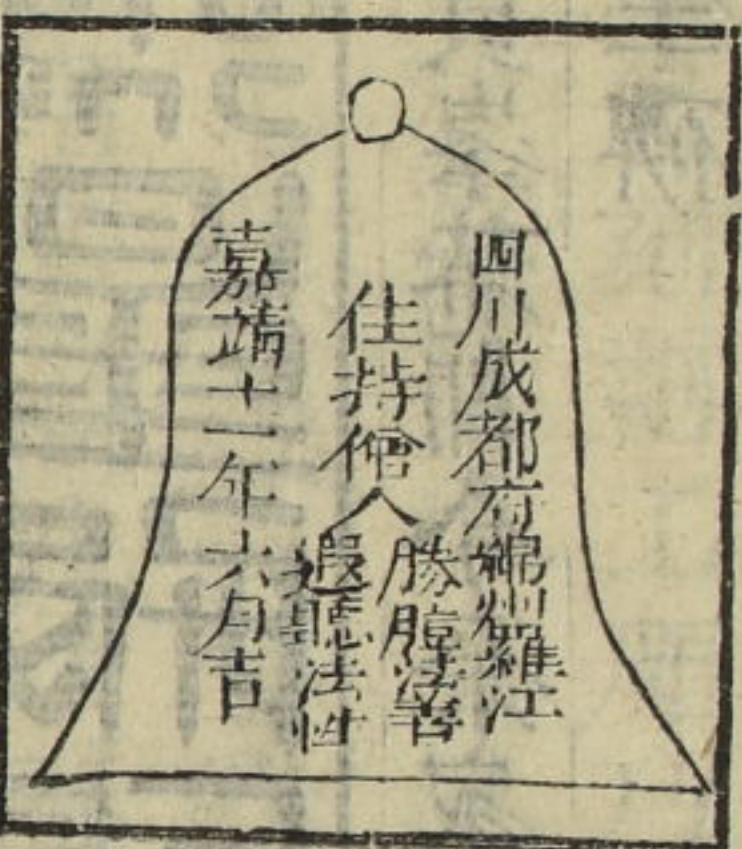 四川成都府綿州羅江
住持僧人
勝朣法善
遐聰法性
嘉靖十一年六月吉